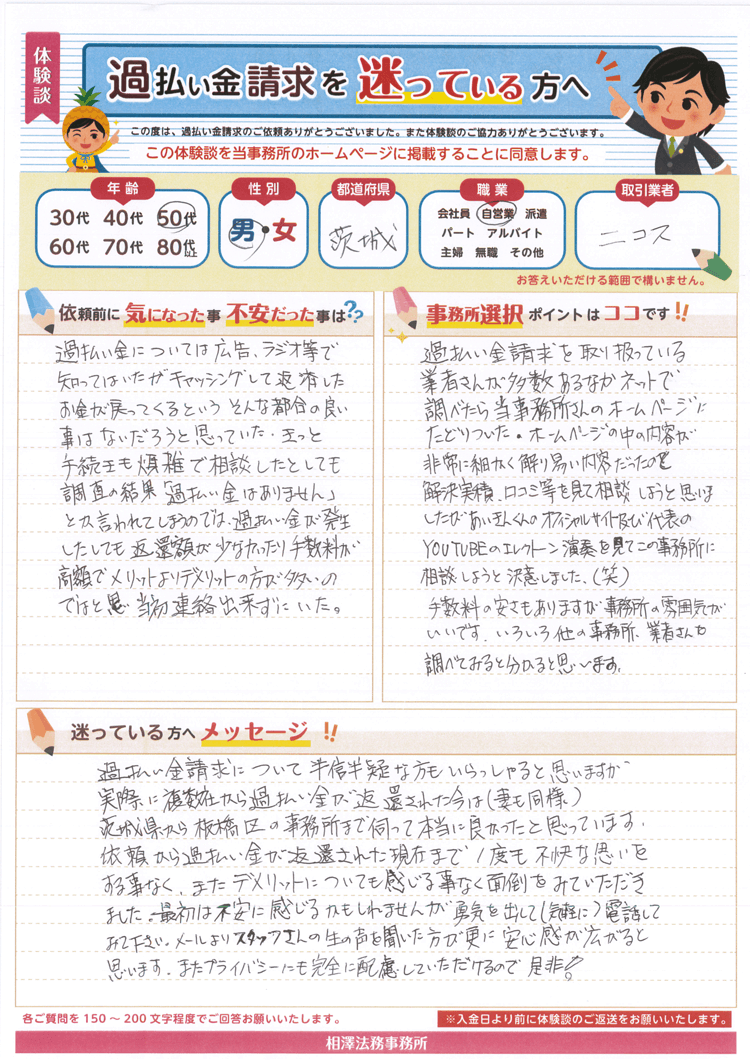 体験談
過払い金請求を迷っている方へ
この度は、過払い金請求のご依頼ありがとうございました。また体験談のご協力ありがとうございます。
この体験談を当事務所のホームページに掲載することに同意します。
年齢 性別 都道府県 職業 取引業者
30代 40代 50代
60代 70代 80代以上
男・女
茨城
会社員 自営業 派遣
パート アルバイト
主婦 無職 その他
ニコス
お答えいただける範囲で構いません。
依頼前に気になった事 不安だった事は??
過払い金については広告、ラジオ等で
知ってはいたがキャッシングして返済した
お金が戻ってくるという そんな都合の良い
事はないだろうと思っていた。
手続きも煩雑で相談したとしても
調査の結果「過払い金はありません」
とか言われてしまうのでは、過払い金が発生
したしても返還額が少なかったり手数料が
高額でメリットよりデメリットの方が多いの
ではと思 当初連絡出来ずにいた。
事務所選択 ポイントは ココです!!
過払い金請求を取り扱っている
業者さんが多数あるなかネットで
調べたら当事務所さんのホームページに
たどりついた。ホームページの中の内容が
非常に細かく解り易い内容だったので
解決実績、口コミ等を見て相談しようと思いま
したがあいきんくんのオフィシャルサイト及び代表の
YOUTUBEのエレクトーン演奏を見てこの事務所に
相談しようと決意しました、(笑)
手数料の安さもありますが事務所の雰囲気が
いいです、いろいろ他の事務所、業者さんも
調べてみると分かると思います。
迷っている方へメッセージ!!
過払い金請求について半信半疑な方もいらっしゃると思いますが
実際に複数社から過払い金が返還された今は(妻も同様)
茨城県から板橋区の事務所まで伺って本当に良かったと思っています。
依頼から過払い金が返還された現在まで1度も不快な思いを
する事なく、またデメリットについても感じる事なく面倒をみていただき
ました、最初は不安に感じるかもしれませんが勇気を出して(気軽に)電話して
みて下さい。メールよりスタッフさんの生の声を聞いた方が更に安心感が広がると
思います。またプライバシーにも完全に配慮していただけるので是非!
各ご質問を150〜200文字程度でご回答お願いいたします。
※入金日より前に体験談のご返送をお願いいたします。
相澤法務事務所